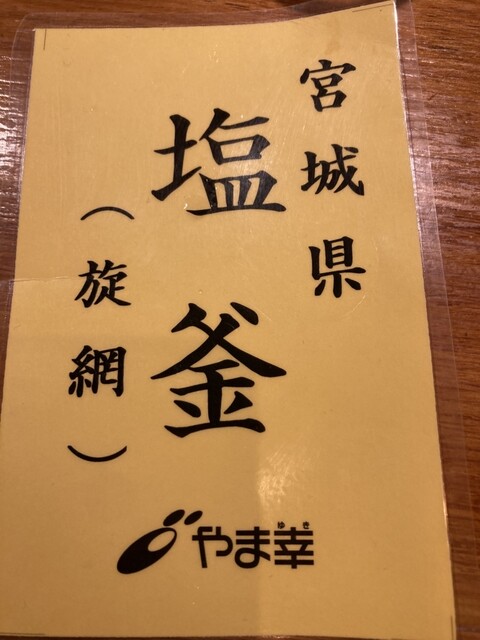 宮城県
塩釜
（旋網）
やま幸
ゆき